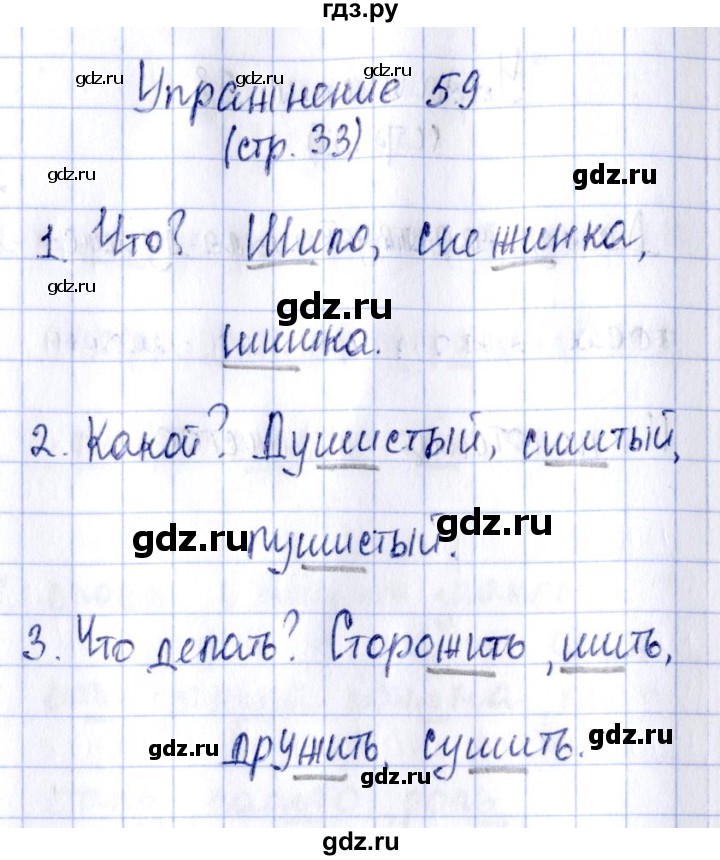 гдз.ру
gdz.ru gdz.ru gdz.ru
Упражнение 59
(стр. 33)
gdz.ru gdz.ru gdz.ru
1. Что? Шило, снежинка,
gdz.ru gdz.ru gdz.ru
шишка.
2. Какой? Душистый, сшитый,
gdz.ru gdz.ru
пушистый.
3. Что делать? Сторожить, шить,
gdz.ru gdz.ru
дружить, сушить.
gdz.ru
gdz.ru